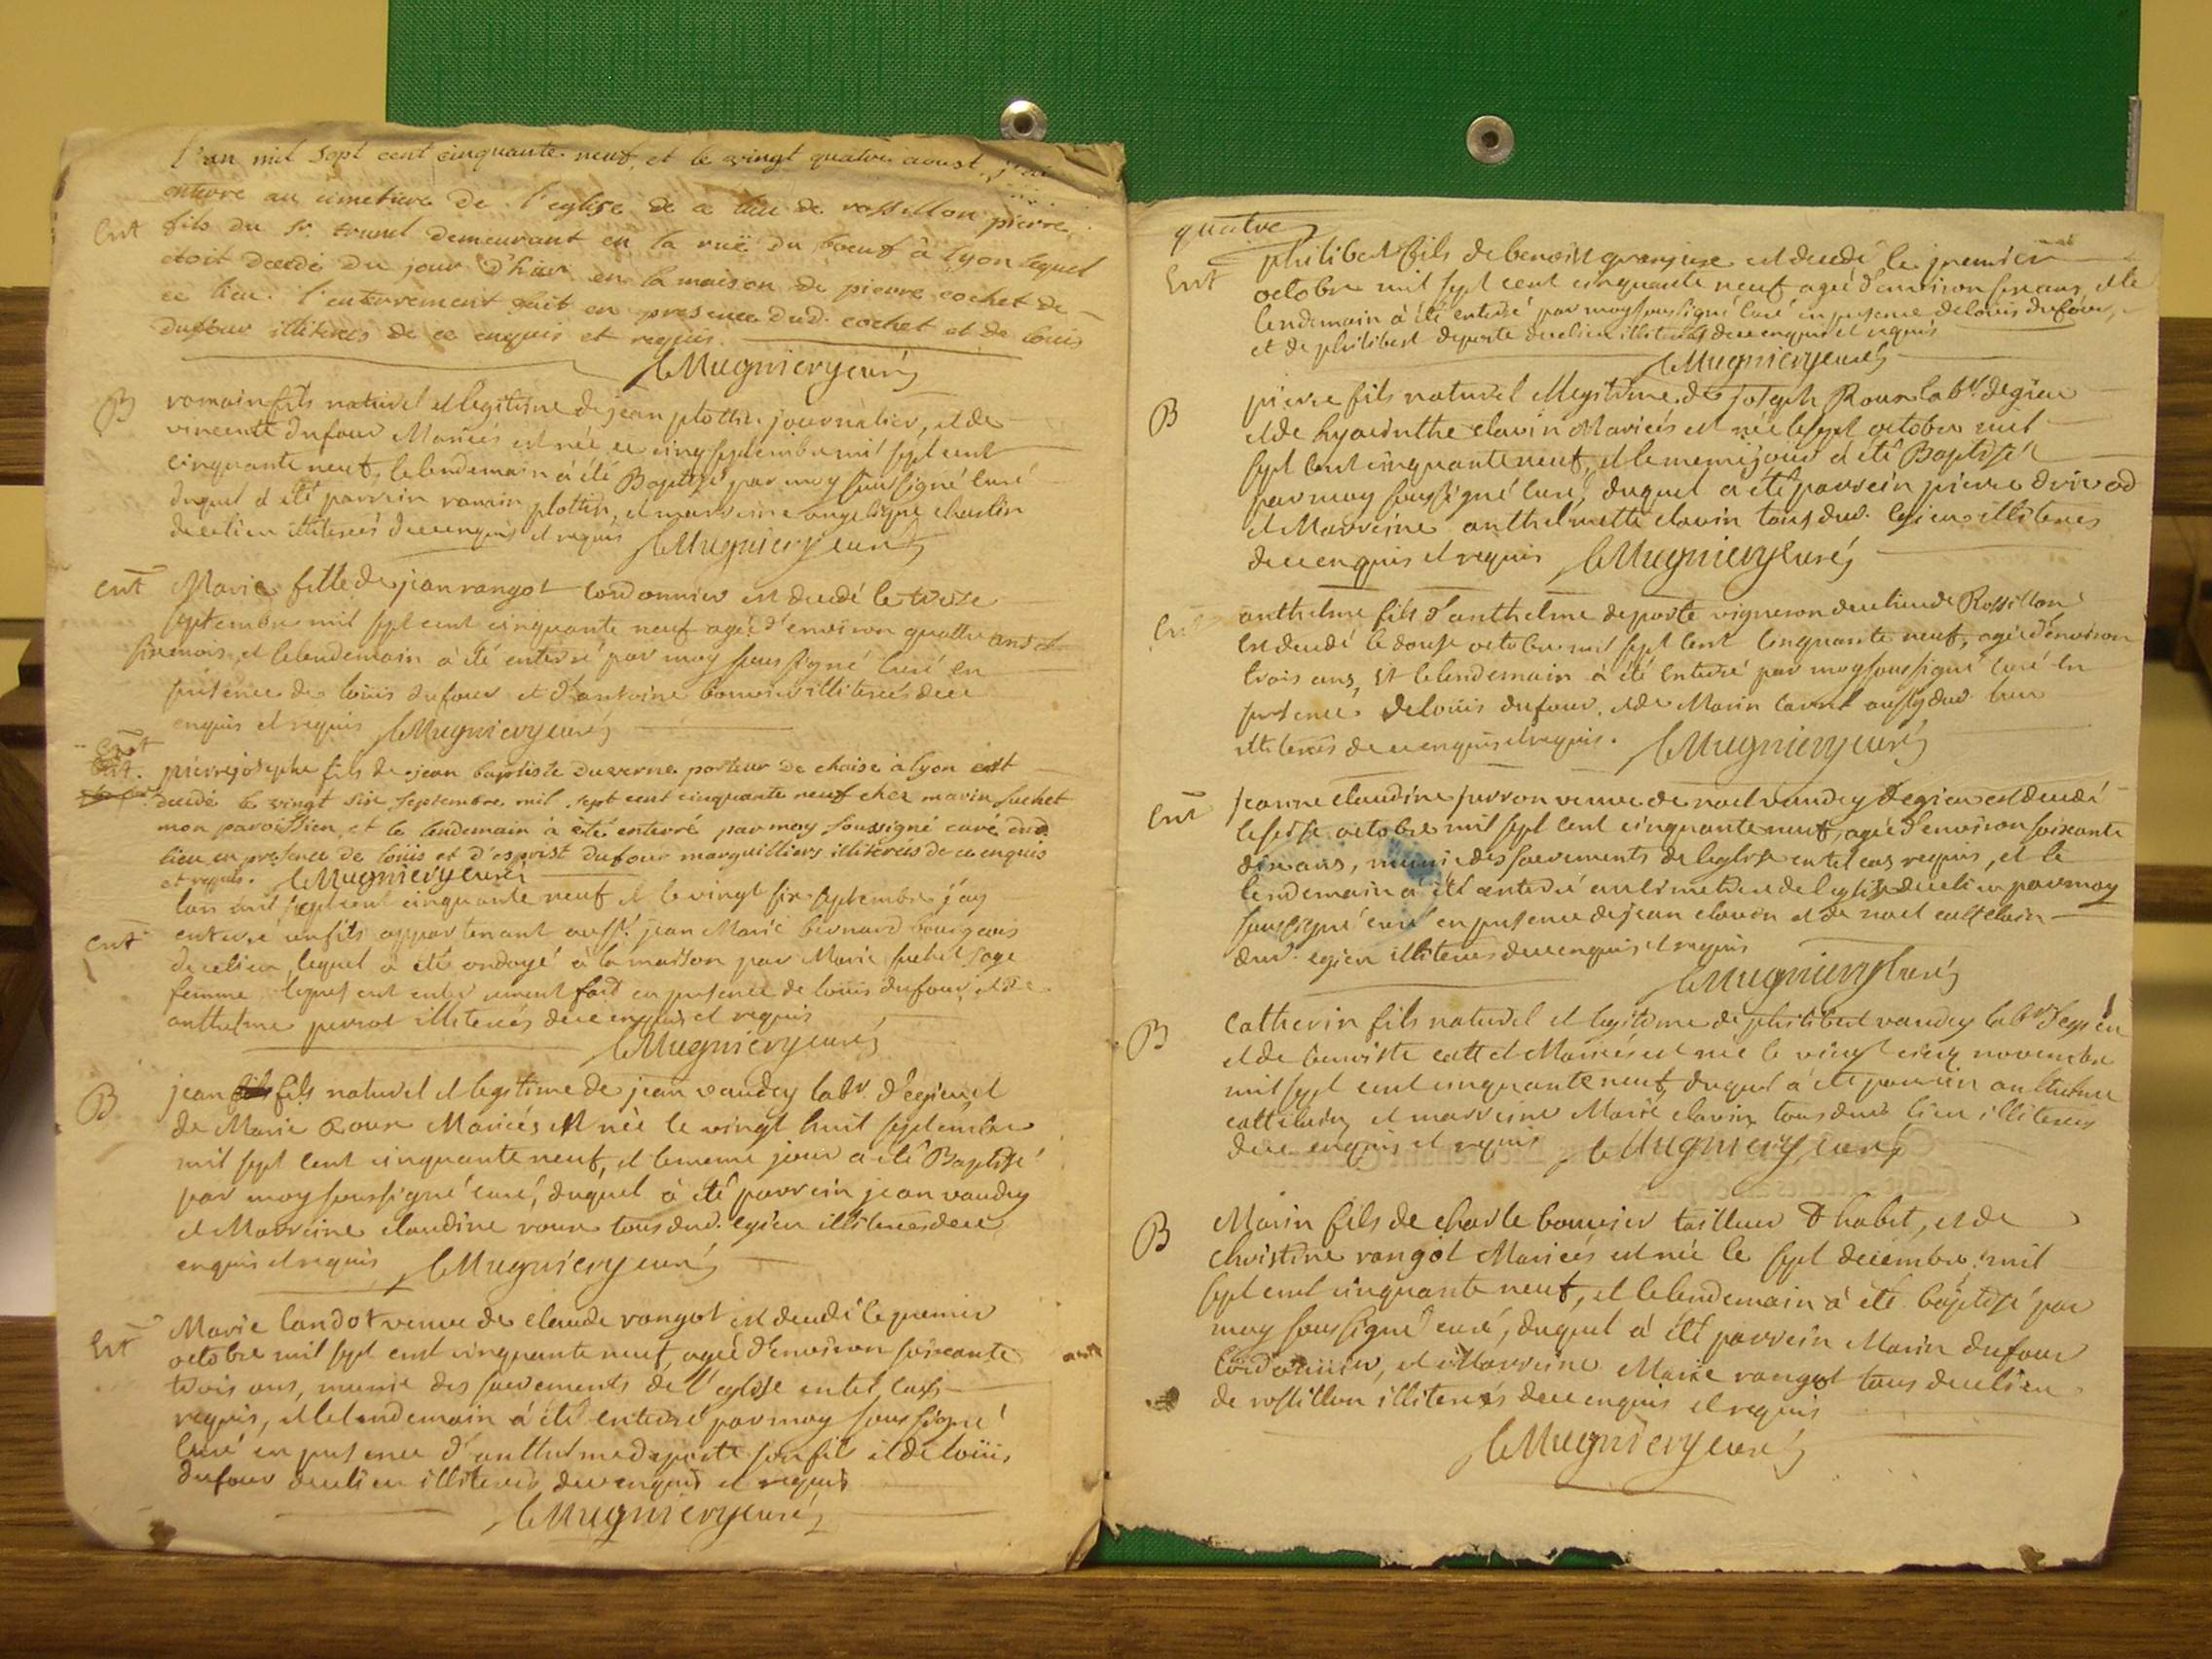 l'an mil sept cent cinquante neuf, et le vingt quatre aoust, j'ai
enterré au cimetiere de l'eglise de ce lieu de rossillon pierre
Ent fils du Sr. trunel demeurant en la ruë du boeuf à lyon lequel
étoit decedé du jour d'hier en la maison de pierre cochet de
ce lieu. l'enterrement fait en presence dud. cochet et de louis
dufour illiterés de ce enquis et requis.
Mugniery curé
B romain fils naturel et legitime de jean plottin journalier, et de
vincente dufour Mariés est née ce cinq septembre mil sept cent
cinquante neuf, le lendemain à été Baptisé par moy soussigné curé
duquel a été parrein romain plottin, et marreine angelique charlin
de ce lieu illiterés de ce enquis et requis Mugniery curé
Ent Marie fille de jean rangot cordonnier est decedé le treise
septembre mil sept cent cinquante neuf agée d'environ quattre ans et
six mois, et le lendemain à été enterré par moy soussigné curé en
presence de loüis dufour et d'antoine bouvier illiterés de ce
enquis et requis Mugniery curé
Ent
Ent. pierre josephe fils de jean baptiste duverne porteur de chaise à lyon est
decedé le vingt six septembre mil sept cent cinquante neuf chez marin fuchet
mon paroissien, et le lendemain à été enterré par moy soussigné curé dud.
lieu en presence de loüis et d'esprist dufour marguilliers illiterés de ce enquis
et requis. Mugniery curé
lan mil sept cent cinquante neuf et le vingt six septembre j'ay
Ent enterré un fils appartenant au Sr. jean Marie bernard bourgeois
de ce lieu lequel à été ondoyé à la maison par Marie fuchet sage
femme lequel ent enterrement fait en presence de louis dufour, et de
anthelme perrot illiterés de ce enquis et requis
Mugniery curé
B jean fils naturel et legitime de jean vaudey labr. d'egieu et
de Marie Roux Mariés est née le vingt huit septembre
mil sept cent cinquante neuf, et le meme jour a été Baptisé
par moy soussigné curé, duquel à été parrein jean vaudey
et Marreine claudine roux tous dud. egieu illiterés de ce
enquis et requis Mugniery curé
Ent Marie landot veuve de claude rangot est decedé le premier
octobre mil sept cent cinquante neuf, agée d'environ soixante
trois ans, munie des sacrements de l'eglise en tel cas
requis, et le lendemain à été enterré par moy soussigné
curé en presence d'anthelme deporte son fils et de loüis
dufour de ce lieu illiterés de ce enquis et requis
Mugniery curé
quatre
Ent philibert fils de benoist grangire est decedé le premier
octobre mil sept cent cinquante neuf agé d'environ six ans, et le
lendemain à été enterré par moy soussigné curé en presence de louis dufour,
et de philibert deporte de ce lieu illiterés de ce enquis et requis
Mugniery curé
B pierre fils naturel et legitime de joseph Roux labr. degieu
et de hyacinthe clavin Mariés est née le sept octobre mil
sept cent cinquante neuf, et le meme jour a été Baptisé
par moy soussigné curé, duquel a été parrein pierre drived
et Marreine anthelmette clavin tous dud. egieu illiterés
de ce enquis et requis Mugniery curé
Ent anthelme fils d'anthelme deporte vigneron de ce lieu de Rossillon
est decedé le douse octobre mil sept cent cinquante neuf, agé d'environ
trois ans, et le lendemain à été enterré par moy soussigné curé en
presence de loüis dufour, et de Marin aussy dud. lieu
illiterés de ce enquis et requis. Mugniery curé
Ent jeanne claudine perron veuve de noel vaudey d'egieu est decedé
le seise octobre mil sept cent cinquante neuf, agée d'environ soixante
dix ans, munie des sacrements de leglise en tel cas requis, et le
lendemain à été enterré au cimetiere de leglise de ce lieu par moy
soussigné curé en presence de jean clavin et de noel cattelain
dud. egieu illiterés de ce enquis et requis
Mugniery Curé
B Catherin fils naturel et legitime de philibert vaudey labr. d'egieu
et de cattet Mariés est née le vingt cinq novembre
mil sept cent cinquante neuf, duquel à été parrein anthelme
cattelain et marreine Marie clavin tous dud. lieu illiterés
de ce enquis et requis Mugniery curé
B Marin fils de charle bouvier tailleur d'habit, et de
christine rangot Mariés est née le sept decembre mil
sept cent cinquante neuf, et le lendemain à été baptisé par
moy soussigné curé, duquel à été parrein Marin dufour
cordonnier, et Marreine Marie rangot tous de ce lieu
de rossillon illiterés de ce enquis et requis
Mugniery curé